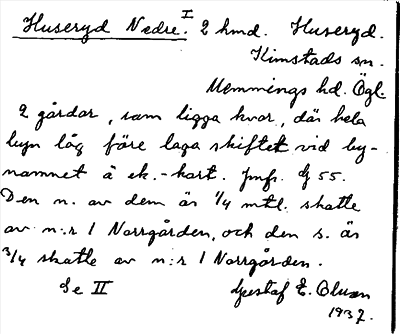 Huseryd Nedre. I 2 hmd. Huseryd.
Kimstads sn.
Memmings hd. Ögl.
2 gårdar, som ligga kvar, där hela
byn låg före laga skiftet vid by-
namnet å ek.-kart. Jmfr. G 55.
Den n. av dem är 1/4 mtl. skatte
av n:r 1 Norrgården, och den s. är
3/4 skatte av n:r 1 Norrgården.
Se II Gustaf E.
1937.